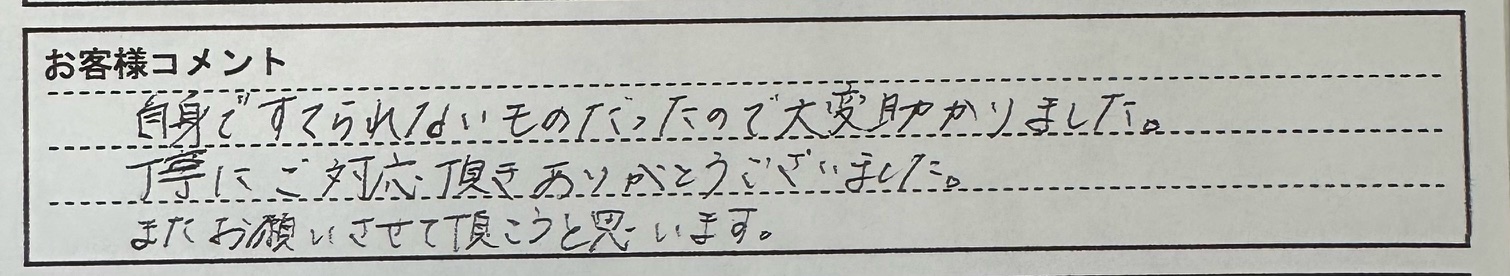 お客様コメント
自身ですてられないものだったので大変助かりました。
丁寧にご対応頂きありがとうございました。
またお願いさせて頂こうと思います。